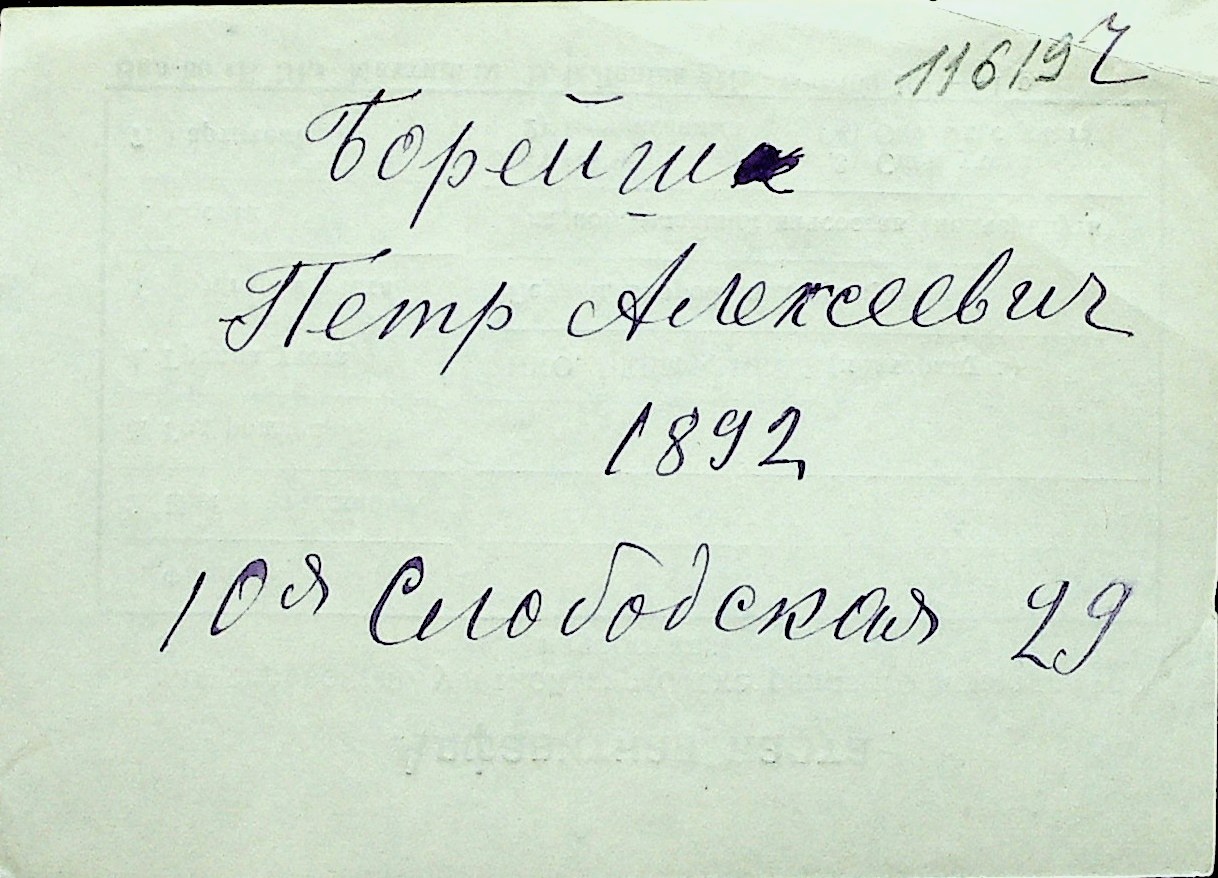 11619 ч
Борейша
Петр Алексеевич
1892
10я Слободская 29